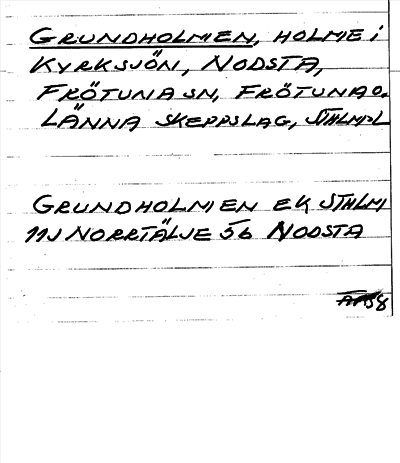 GRUNDHOLMEN, HOLME i
KYRKSJÖN, NODSTA,
FRÖTUNA SN, FRÖTUNA O.
LÄNNA SKEPPSLAG, STHLMSL
GRUNDHOLMEN EK STHLM
11J NORRTÄLJE 56 NODSTA